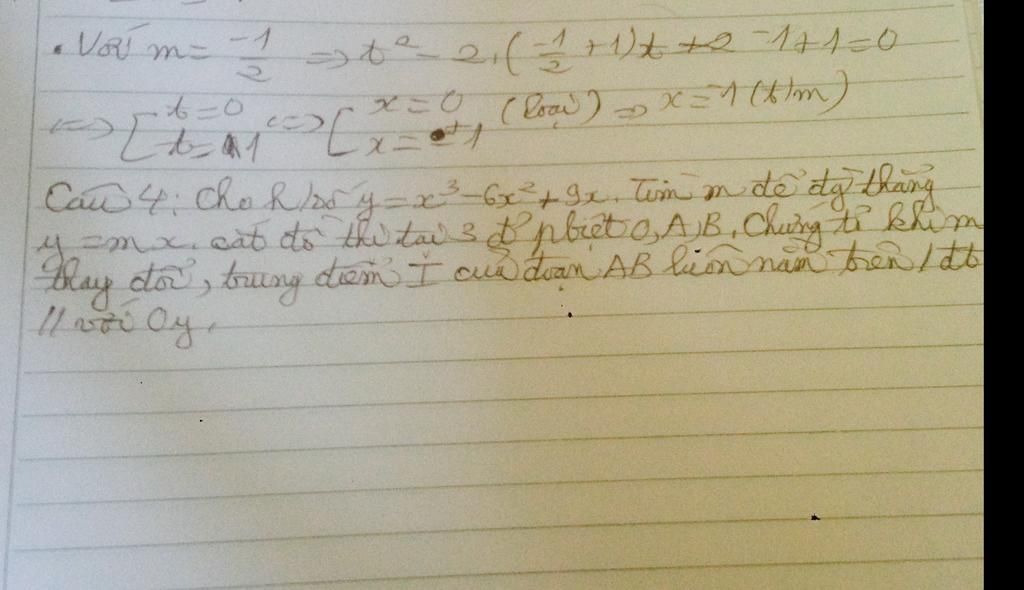 • Với m = -1/2 => t² - 2.(-1/2 + 1)t + 2 -1 + 1 = 0
<=> [ t = 0 <=> [ x = 0 (loại) => x = -1 (t/m)
t = 1 x = ±1
Câu 4: Cho h/số y = x³ - 6x² + 9x. Tìm m để đg thẳng
y = mx. cắt đồ thị tại 3 đ' pbiệt O, A, B. Chứng tỏ khi m
thay đổi, trung điểm I của đoạn AB luôn nằm trên 1 đt
// với Oy.